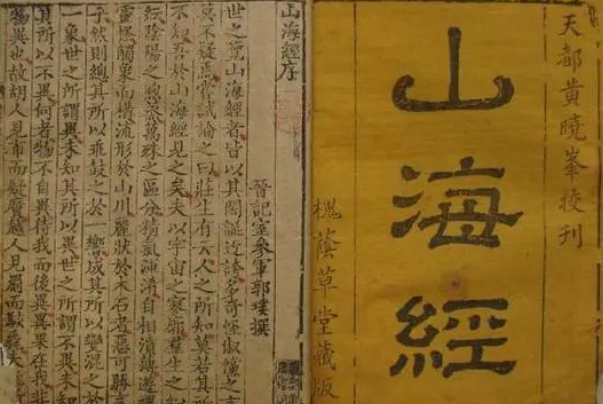 天都黃曉峯校刊
山海經
槐蔭草堂藏版
山海經序
晉記室參軍郭璞撰
世之覽山海經者皆以其閎誕迂誇多奇怪俶儻之言
莫不疑焉嘗試論之曰莊生有云人之所知莫若其所
不知吾於山海經見之矣夫以宇宙之寥廓羣生之
紜陰陽之煦蒸萬殊之區分精氣渾淆自相濆薄遊魂
靈怪觸象而構流形於山川麗狀於木石者惡可勝言
乎然則總其所以乖鼓之於一響成其所以變混之於
一象世之所謂異未知其所以異世之所謂不異未知
其所以不異何者物不自異待我而後異異果在我非
物異也故胡人見布而疑黂越人見罽而駭毳夫